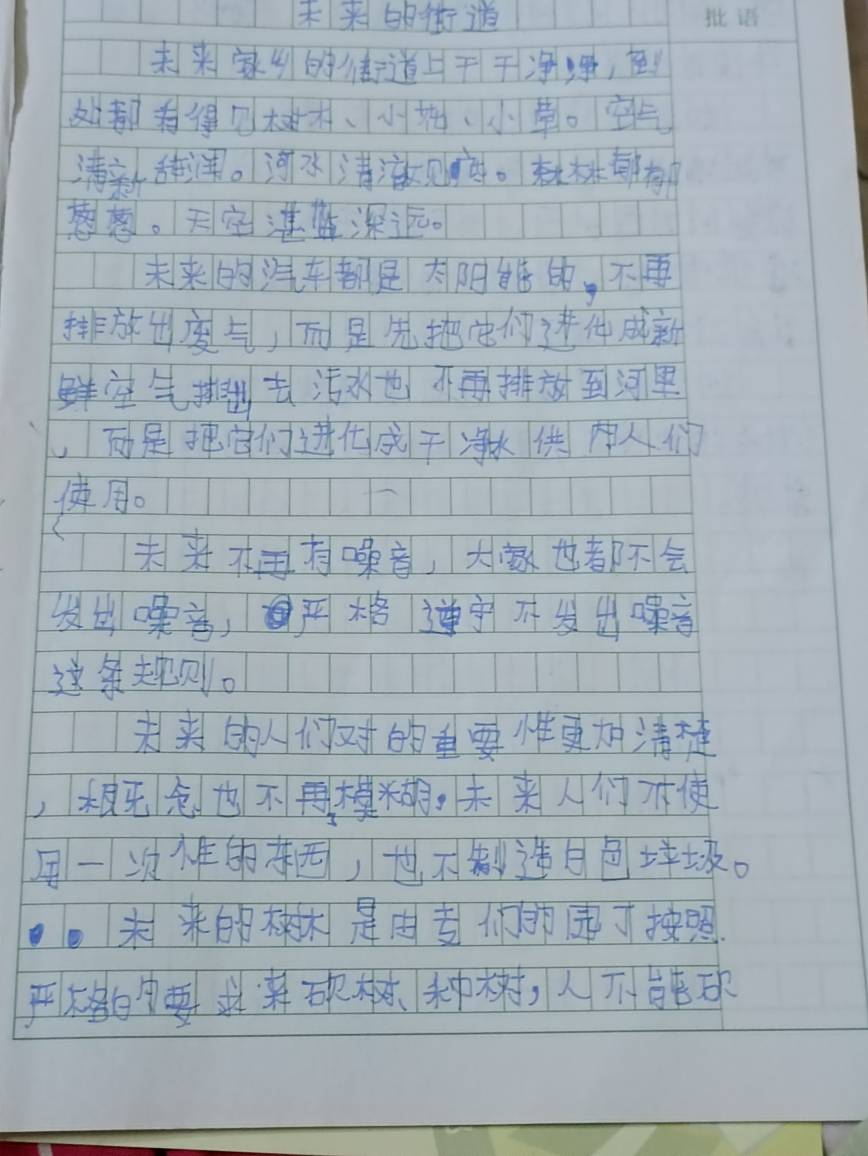 未来的街道
批语
未来家乡的街道上干干净净,到
处都看得见树木、小花、小草。空气
清新甜润。河水清澈见底。林林郁郁
葱葱。天空湛蓝深远。
未来的汽车都是太阳能的,不再
排放出废气,而是先把它们进化成新
鲜空气排出去污水也不再排放到河里
,而是把它们进化成干净水供内人们
使用。
未来不再有噪音,大家也都不会
发出噪音,严格遵守不发出噪音
这条规则。
未来的人们对的重要性更加清楚
,概念也不再模糊,未来人们不使
用一次性的东西,也不制造白色垃圾。
未来的树林是由专们的园丁按照
严格的要求来砍树、种树,人不能砍